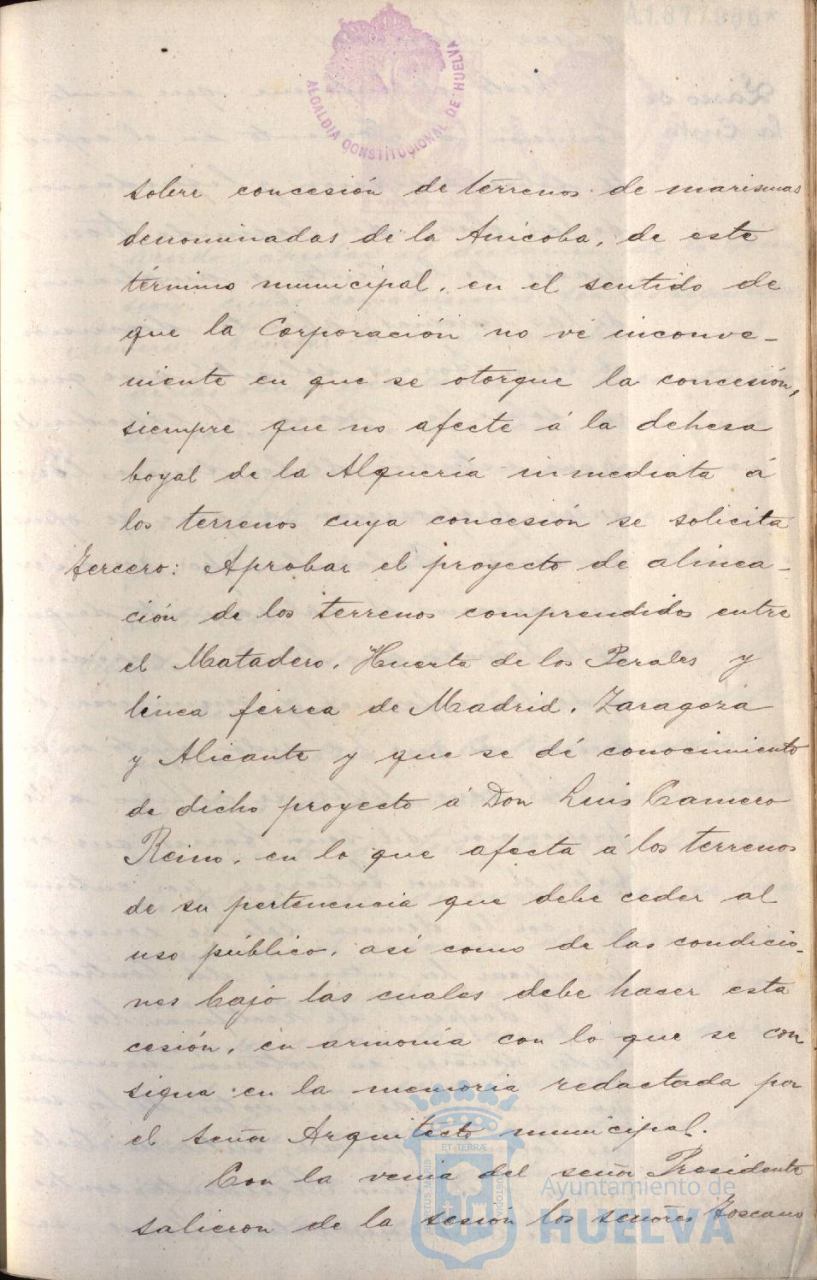 ALCALDIA CONSTITUCIONAL DE HUELVA
sobre concesión de terrenos de marismas
denominadas de la Anicoba, de este
término municipal, en el sentido de
que la Corporación no vé inconve-
niente en que se otorgue la concesión,
siempre que no afecte á la dehesa
boyal de la Alquería inmediata á
los terrenos cuya concesión se solicita
Tercero: Aprobar el proyecto de alinea-
ción de los terrenos comprendidos entre
el Matadero, Huerta de los Perales y
línea férrea de Madrid, Zaragoza
y Alicante y que se dé conocimiento
de dicho proyecto á Don Luis Camero
Reino, en lo que afecta á los terrenos
de su pertenencia que debe ceder al
uso público, así como de las condicio-
nes bajo las cuales debe hacer esta
cesión, en armonía con lo que se con
signa en la memoria redactada por
el señor Arquitecto municipal.
Con la venia del señor Presidente
salieron de la sesión los señores Toscano
Ayuntamiento de
HUELVA